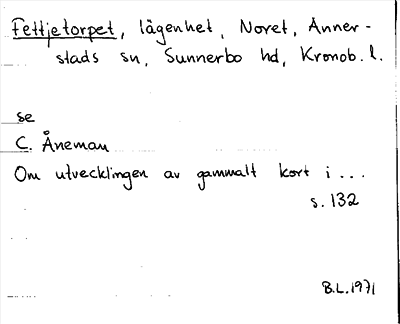 Fettjetorpet, lägenhet, Noret, Anner-
stads sn, Sunnerbo hd, Kronob. l.
se
C. Åneman
Om utvecklingen av gammalt kort i ...
s. 132
B.L. 1971